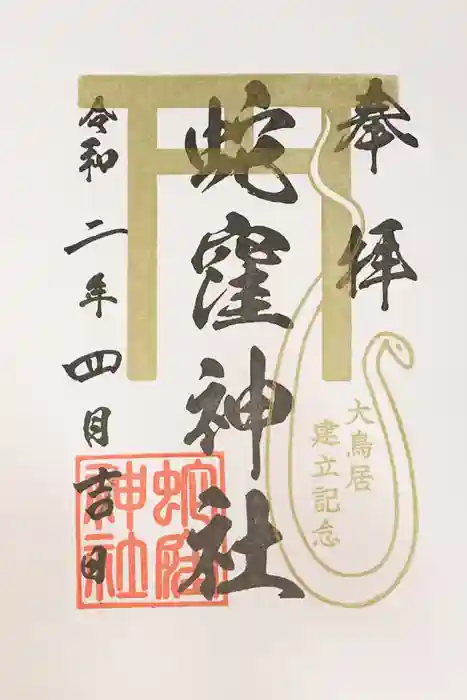 奉拝
大鳥居
建立記念
蛇窪神社
令和二年四月吉日
蛇窪
神社